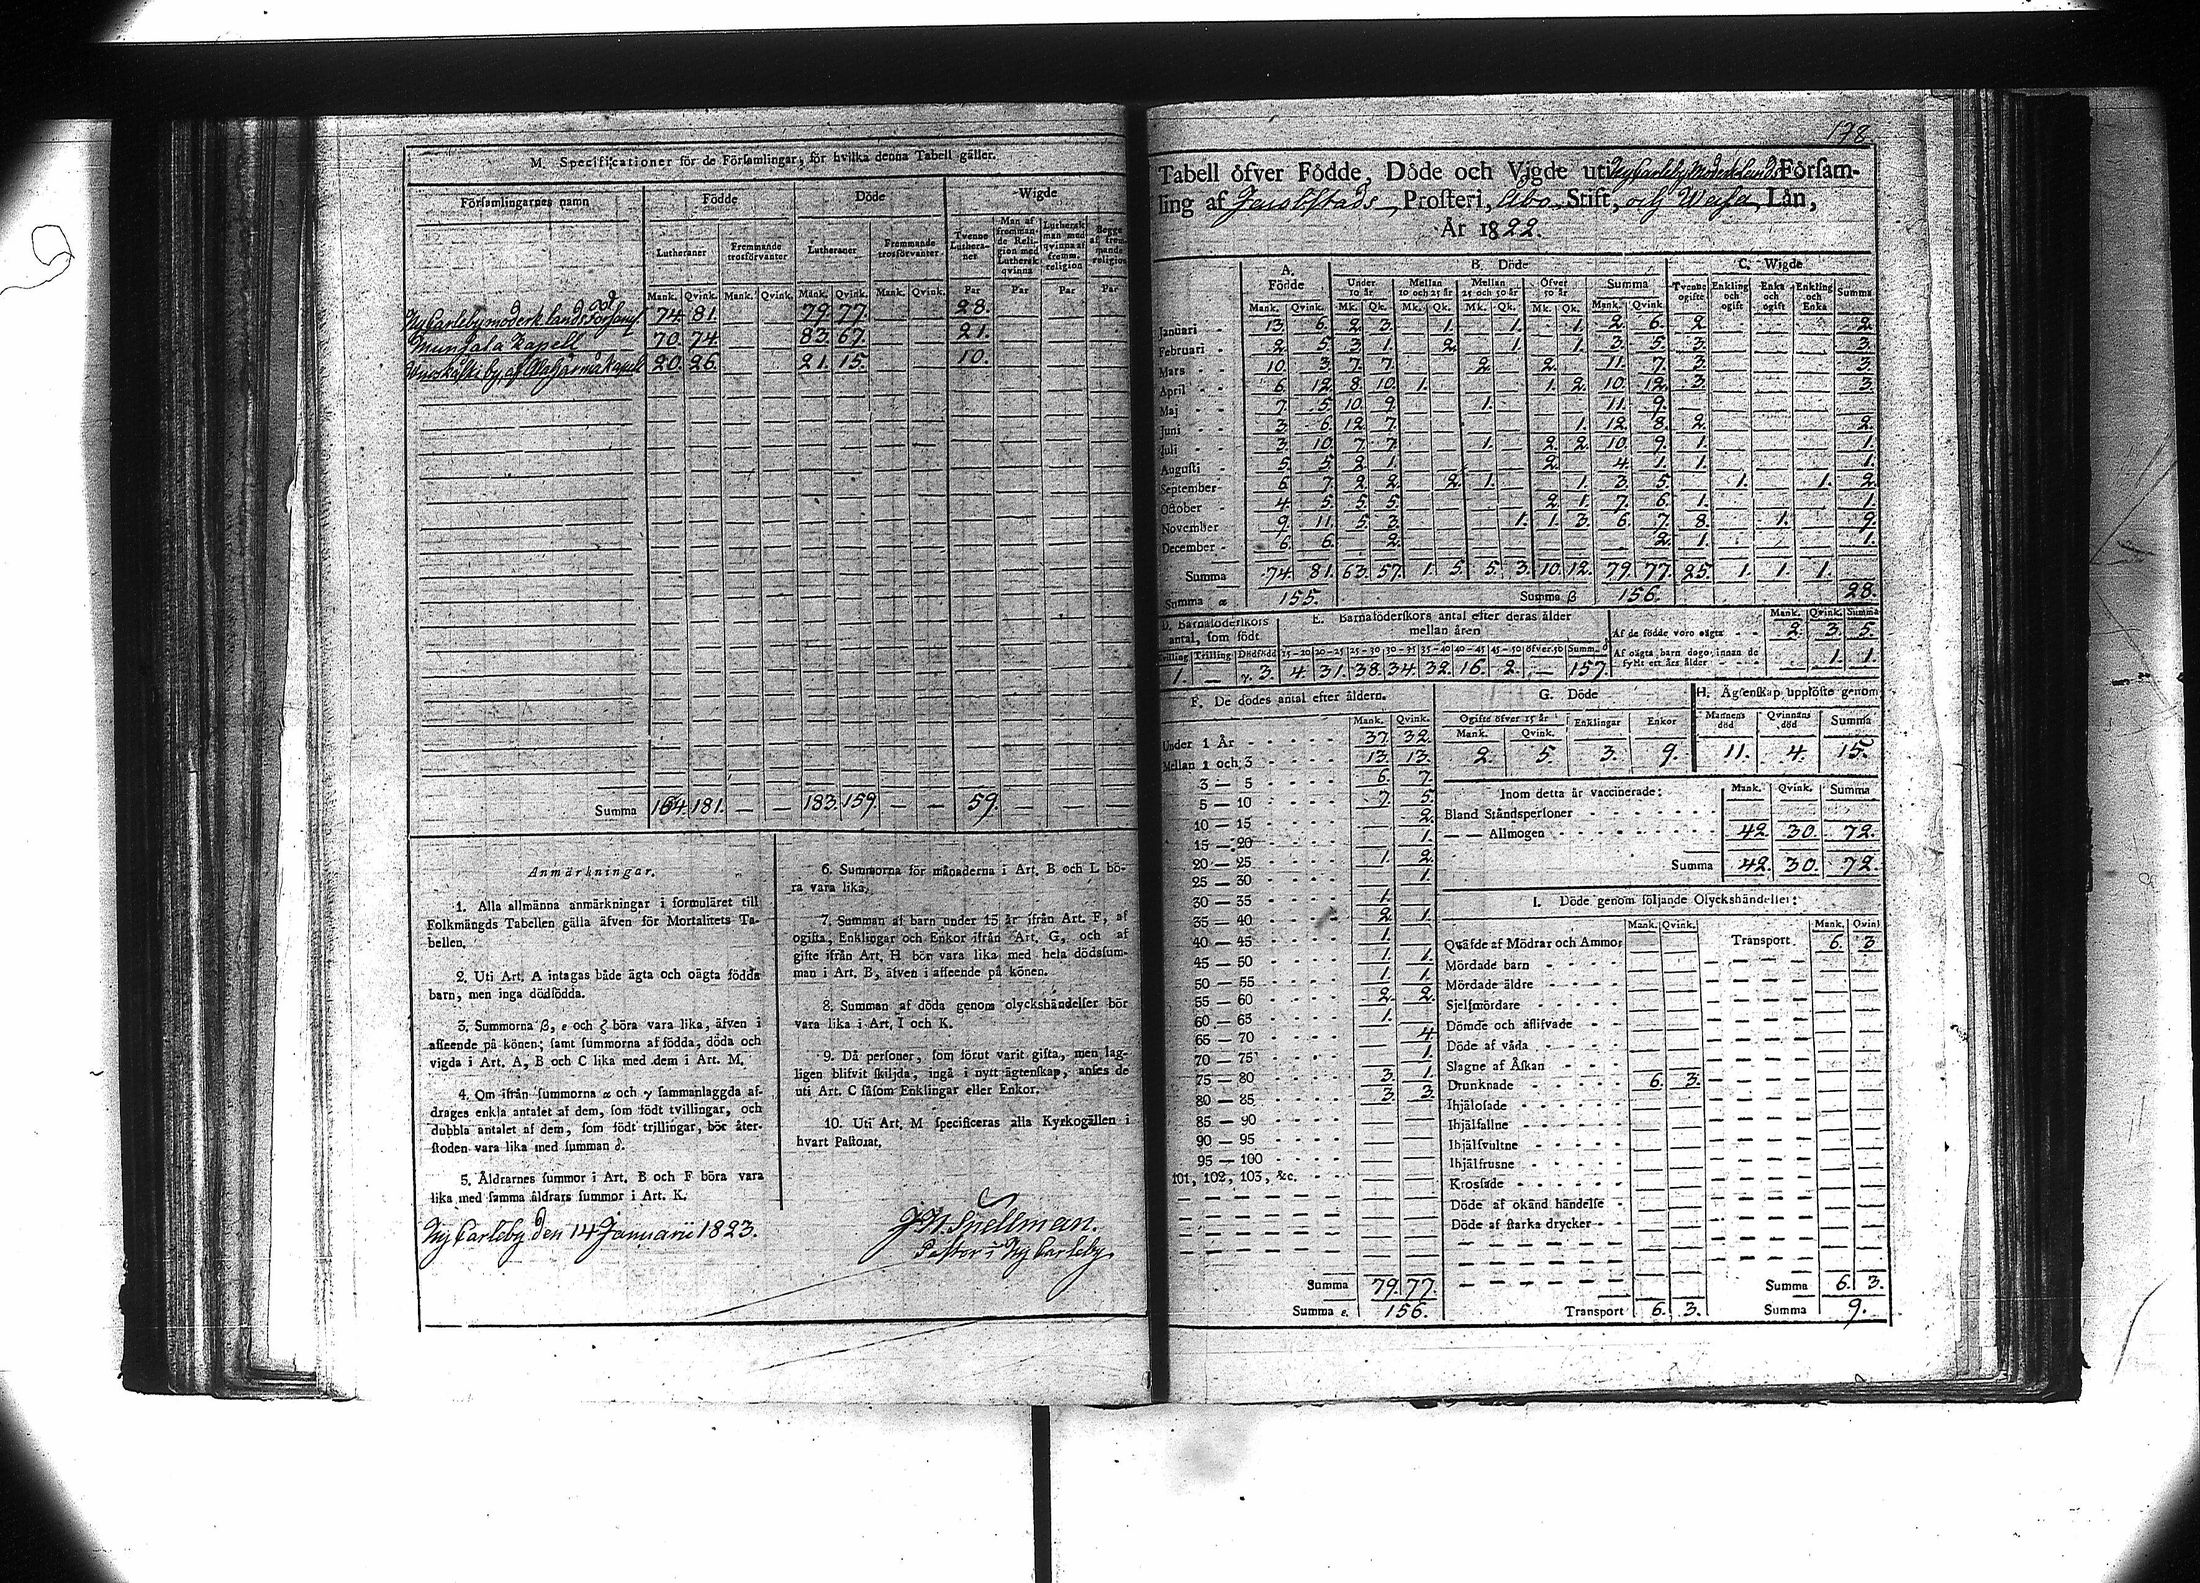 M. Specificationer för de Församlingar, för hvilka denna Tabell gäller.
Församlingarnes namn | Födde | Döde | Wigde
Lutheraner | Fremmande trosförvanter | Lutheraner | Fremmande trosförvanter | Tvenne Lutheraner | Man af fremmande Religion med Luthersk qvinna | Luthersk man med qvinna af fremm. religion | Begge af fremmande religion
Mank. Qvink. Mank. Qvink. Mank. Qvink. Mank. Qvink. Par Par Par Par
Ny Carleby moderk. lands Församl 74. 81. — — 79. 77. — — 28. — —
Munsala Kapell 70. 74. — — 83. 67. — — 21. — —
by, af Alahärmä Kapell 20. 26. — — 21. 15. — — 10. — —
Summa 164. 181. — — 183. 159. — — 59. — —
Anmärkningar.
1. Alla allmänna anmärkningar i formuläret till
Folkmängds Tabellen gälla äfven för Mortalitets Ta-
bellen.
2. Uti Art. A intagas både ägta och oägta födda
barn, men inga dödfödda.
3. Summorna β, ε och ζ böra vara lika, äfven i
afseende på könen; samt summorna af födda, döda och
vigda i Art. A, B och C lika med dem i Art. M.
4. Om ifrån summorna α och γ sammanlaggda af-
drages enkla antalet af dem, som födt tvillingar, och
dubbla antalet af dem, som födt trillingar, bör åter-
stoden vara lika med summan δ.
5. Åldrarnes summor i Art. B och F böra vara
lika med samma åldrars summor i Art. K.
Ny Carleby den 14 Januarii 1823.
6. Summorna för månaderna i Art. B och L bö-
ra vara lika.
7. Summan af barn under 15 år ifrån Art. F, af
ogifta, Enklingar och Enkor ifrån Art. G, och af
gifte ifrån Art. H bör vara lika med hela dödssum-
man i Art. B, äfven i afseende på könen.
8. Summan af döda genom olyckshändelser bör
vara lika i Art. I och K.
9. Då personer, som förut varit gifta, men lag-
ligen blifvit skiljda, ingå i nytt ägtenskap, anses de
uti Art. C såsom Enklingar eller Enkor.
10. Uti Art. M specificeras alla Kyrkogällen i
hvart Pastorat.
J. N. Snellman.
Pastor i Ny Carleby.
178.
Tabell öfver Födde, Döde och Vigde uti Ny Carleby Moderk. Lands Församling
af Prosteri, Åbo Stift, och Wasa Län,
År 1822.
A. Födde | B. Döde | C. Wigde
Under 10 år | Mellan 10 och 25 år | Mellan 25 och 50 år | Öfver 50 år | Summa | Tvenne ogifte | Enkling och ogift | Enka och ogift | Enkling och Enka | Summa
Mank. Qvink. Mk. Qk. Mk. Qk. Mk. Qk. Mk. Qk. Mank. Qvink.
Januari 13. 6. 2. 3. 1. 1. 1. 2. 6. 2. 2.
Februari 2. 5. 3. 1. 2. 1. 1. 3. 5. 3. 3.
Mars 10. 3. 7. 7. 2. 2. 11. 7. 3. 3.
April 6. 12. 8. 10. 1. 1. 2. 10. 12. 3. 3.
Maj 7. 5. 10. 9. 1. 11. 9.
Juni 3. 6. 12. 7. 1. 12. 8. 2. 2.
Juli 3. 10. 7. 7. 1. 2. 2. 10. 9. 1. 1.
Augusti 5. 5. 2. 1. 2. 4. 1. 1. 1.
September 6. 7. 2. 2. 2. 1. 1. 3. 5. 1. 1. 2.
October 4. 5. 5. 5. 2. 1. 7. 6. 1. 1.
November 9. 11. 5. 3. 1. 1. 3. 6. 7. 8. 1. 9.
December 6. 6. 2. 2. 1. 1.
Summa 74. 81. 63. 57. 1. 5. 5. 3. 10. 12. 79. 77. 25. 1. 1. 1.
Summa α 155. Summa β 156. 28.
D. Barnaföderskors antal, som födt
Tvilling Trilling Dödfödd
1. — γ. 3.
E. Barnaföderskors antal efter deras ålder mellan åren
15—20 20—25 25—30 30—35 35—40 40—45 45—50 öfver 50 Summ. δ
4. 31. 38. 34. 32. 16. 2. — 157.
Mank. Qvink. Summa
Af de födde voro oägta 2. 3. 5.
Af oägta barn dogo innan de fyllt ett års ålder 1. 1.
F. De dödes antal efter åldern.
Mank. Qvink.
Under 1 År 37. 32.
Mellan 1 och 3 13. 13.
3 — 5 6. 7.
5 — 10 7. 5.
10 — 15 2.
15 — 20 1.
20 — 25 1. 2.
25 — 30 1.
30 — 35 1.
35 — 40 2. 1.
40 — 45 1.
45 — 50 1. 1.
50 — 55 1. 1.
55 — 60 2. 2.
60 — 65 1.
65 — 70 4.
70 — 75 1.
75 — 80 3. 1.
80 — 85 3. 3.
85 — 90
90 — 95
95 — 100
101, 102, 103, &c.
Summa 79. 77.
Summa ε. 156.
G. Döde
Ogifte öfver 15 år | Enklingar | Enkor
Mank. Qvink.
2. 5. 3. 9.
H. Ägtenskap upplöste genom
Mannens död | Qvinnans död | Summa
11. 4. 15.
Inom detta år vaccinerade: Mank. Qvink. Summa
Bland Ståndspersoner
— — Allmogen 42. 30. 72.
Summa 42. 30. 72.
I. Döde genom följande Olyckshändelser:
Mank. Qvink. Mank. Qvink
Qväfde af Mödrar och Ammor Transport 6. 3
Mördade barn
Mördade äldre
Sjelfmördare
Dömde och aflifvade
Döde af våda
Slagne af Åskan
Drunknade 6. 3.
Ihjälosade
Ihjälfallne
Ihjälsvultne
Ihjälfrusne
Krossade
Döde af okänd händelse
Döde af starka drycker
Summa 6. 3.
Transport 6. 3. Summa 9.